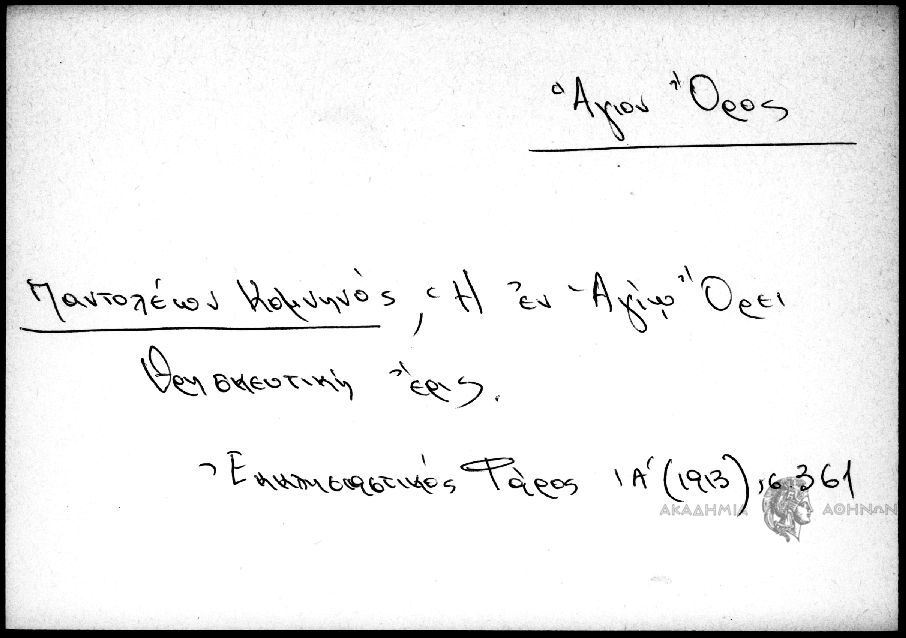 Ἅγιον Ὄρος
Παντολέων Κομνηνός, Ἡ ἐν Ἁγίῳ Ὄρει
θρησκευτικὴ ἔρις.
Ἐκκλησιαστικός Φάρος ΙΑ΄ (1913), σ 361
ΑΚΑΔΗΜΙΑ ΑΘΗΝΩΝ